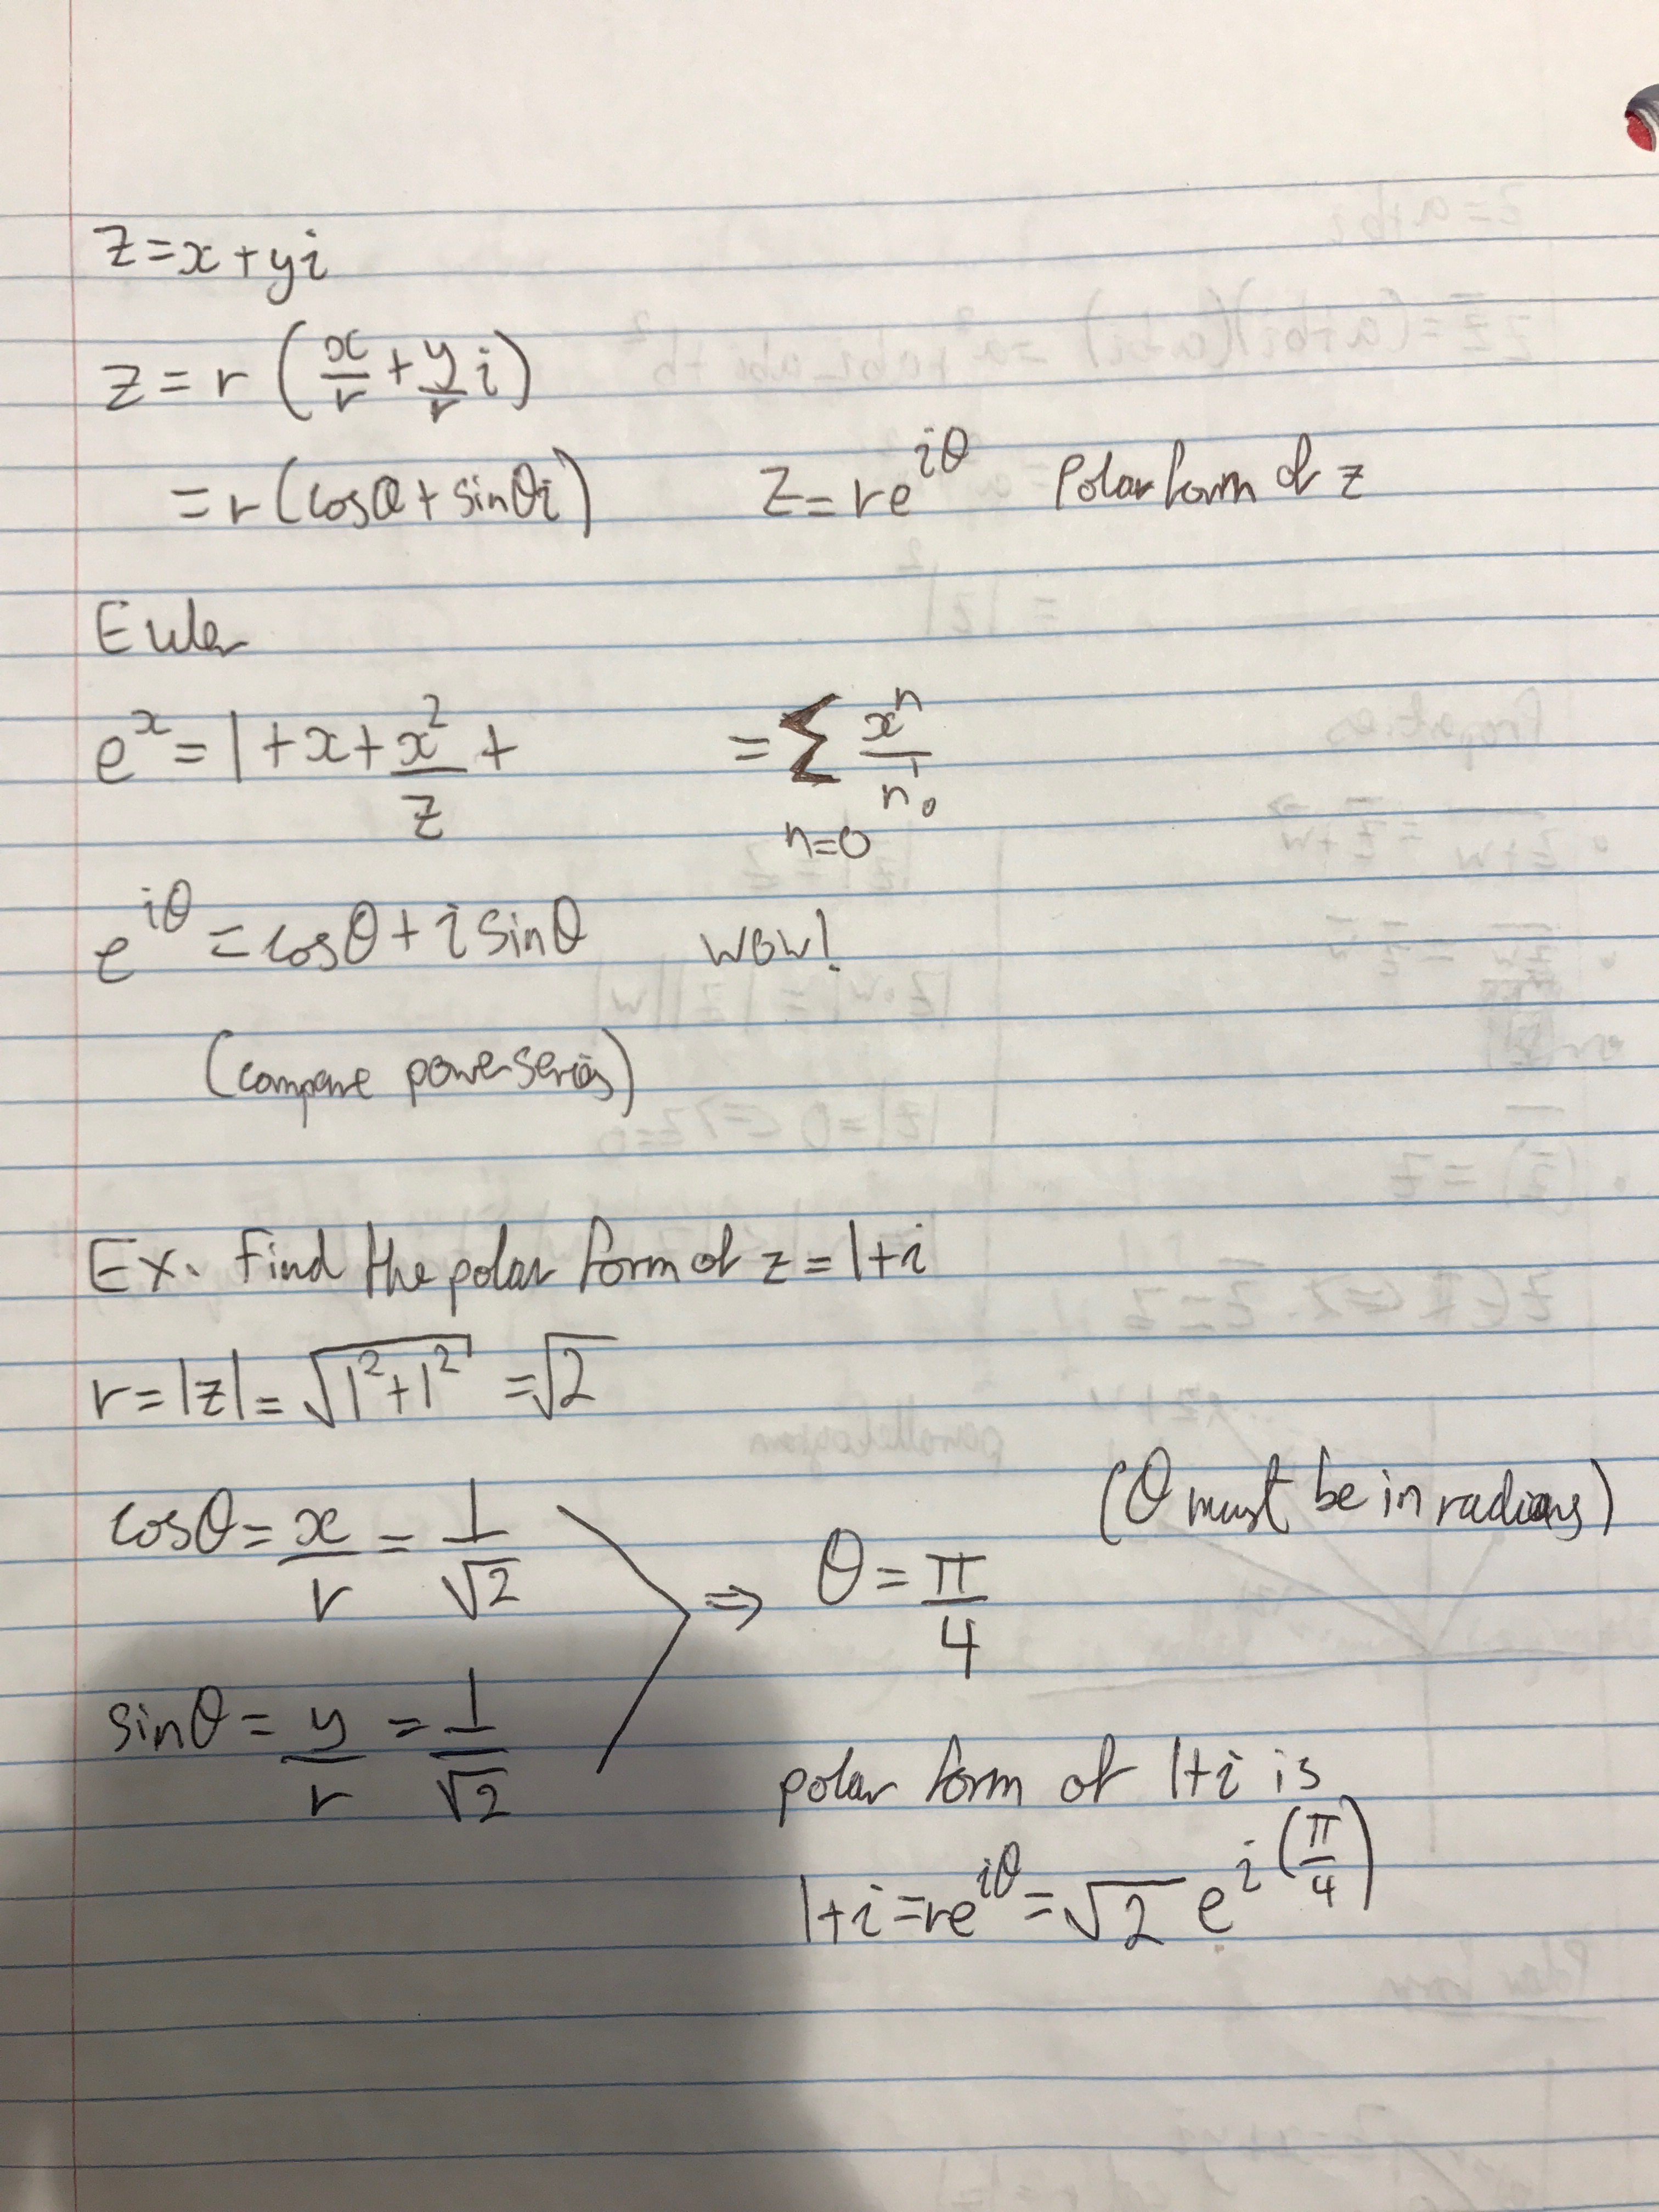 z = x + yi
z = r (x/r + y/r i)
= r (cosθ + sinθi)    z = re^{iθ}    Polar form of z
Euler
e^x = 1 + x + x²/z +    = Σ_{n=0} x^n/n!
e^{iθ} = cosθ + i sinθ    wow!
(compare power series)
Ex. Find the polar form of z = 1+i
r = |z| = √(1²+1²) = √2
(θ must be in radians)
cosθ = x/r = 1/√2
⇒ θ = π/4
sinθ = y/r = 1/√2
polar form of 1+i is
1+i = re^{iθ} = √2 e^{i(π/4)}